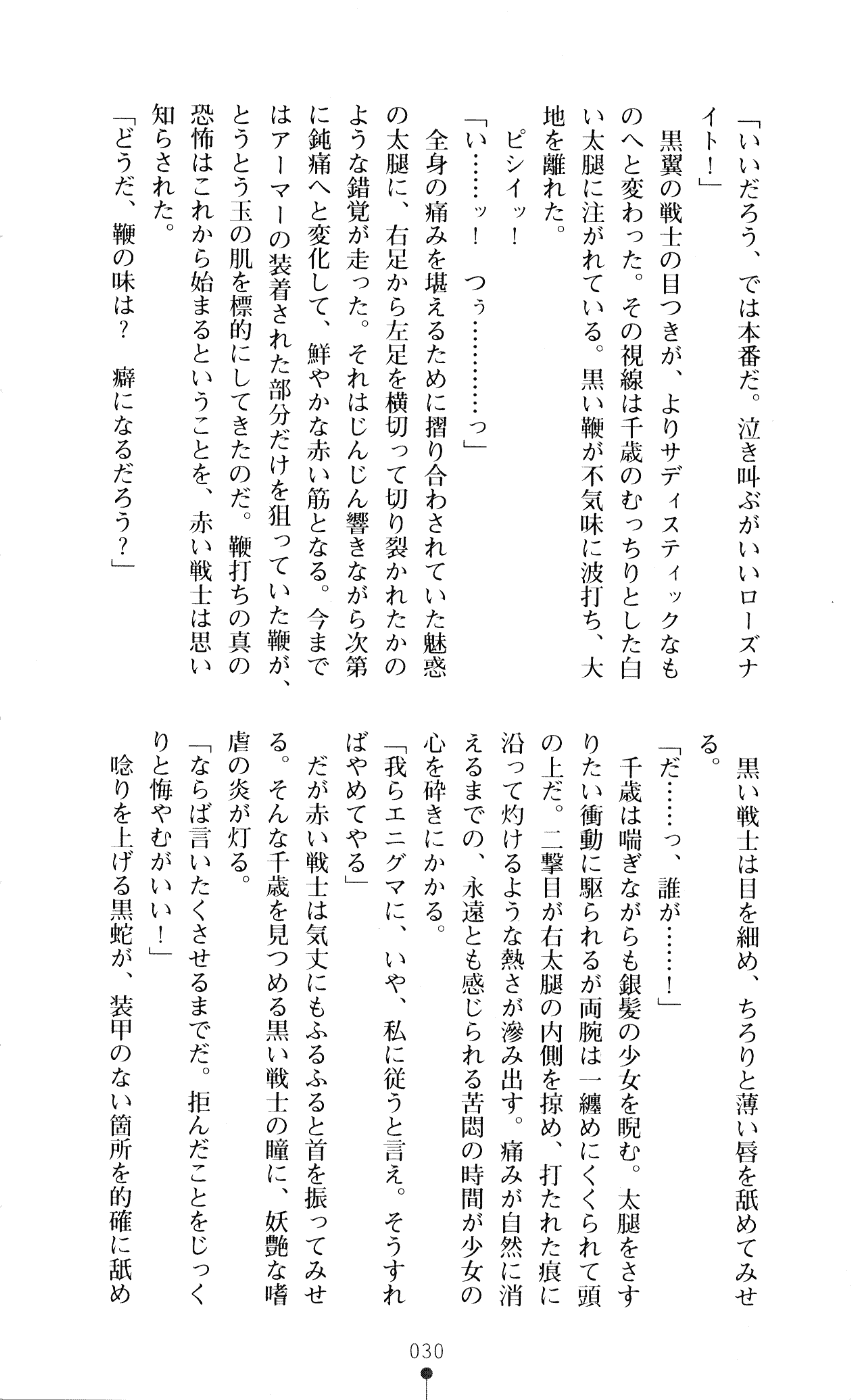 「いいだろう、では本番だ。泣き叫ぶがいいローズナ
イト！」
黒翼の戦士の目つきが、よりサディスティックなも
のへと変わった。その視線は千歳のむっちりとした白
い太腿に注がれている。黒い鞭が不気味に波打ち、大
地を離れた。
ピシイッ！
「い……ッ！　つぅ…………っ」
全身の痛みを堪えるために摺り合わされていた魅惑
の太腿に、右足から左足を横切って切り裂かれたかの
ような錯覚が走った。それはじんじん響きながら次第
に鈍痛へと変化して、鮮やかな赤い筋となる。今まで
はアーマーの装着された部分だけを狙っていた鞭が、
とうとう玉の肌を標的にしてきたのだ。鞭打ちの真の
恐怖はこれから始まるということを、赤い戦士は思い
知らされた。
「どうだ、鞭の味は？　癖になるだろう？」
黒い戦士は目を細め、ちろりと薄い唇を舐めてみせ
る。
「だ……っ、誰が……！」
千歳は喘ぎながらも銀髪の少女を睨む。太腿をさす
りたい衝動に駆られるが両腕は一纏めにくくられて頭
の上だ。二撃目が右太腿の内側を掠め、打たれた痕に
沿って灼けるような熱さが滲み出す。痛みが自然に消
えるまでの、永遠とも感じられる苦悶の時間が少女の
心を砕きにかかる。
「我らエニグマに、いや、私に従うと言え。そうすれ
ばやめてやる」
だが赤い戦士は気丈にもふるふると首を振ってみせ
る。そんな千歳を見つめる黒い戦士の瞳に、妖艶な嗜
虐の炎が灯る。
「ならば言いたくさせるまでだ。拒んだことをじっく
りと悔やむがいい！」
唸りを上げる黒蛇が、装甲のない箇所を的確に舐め
030